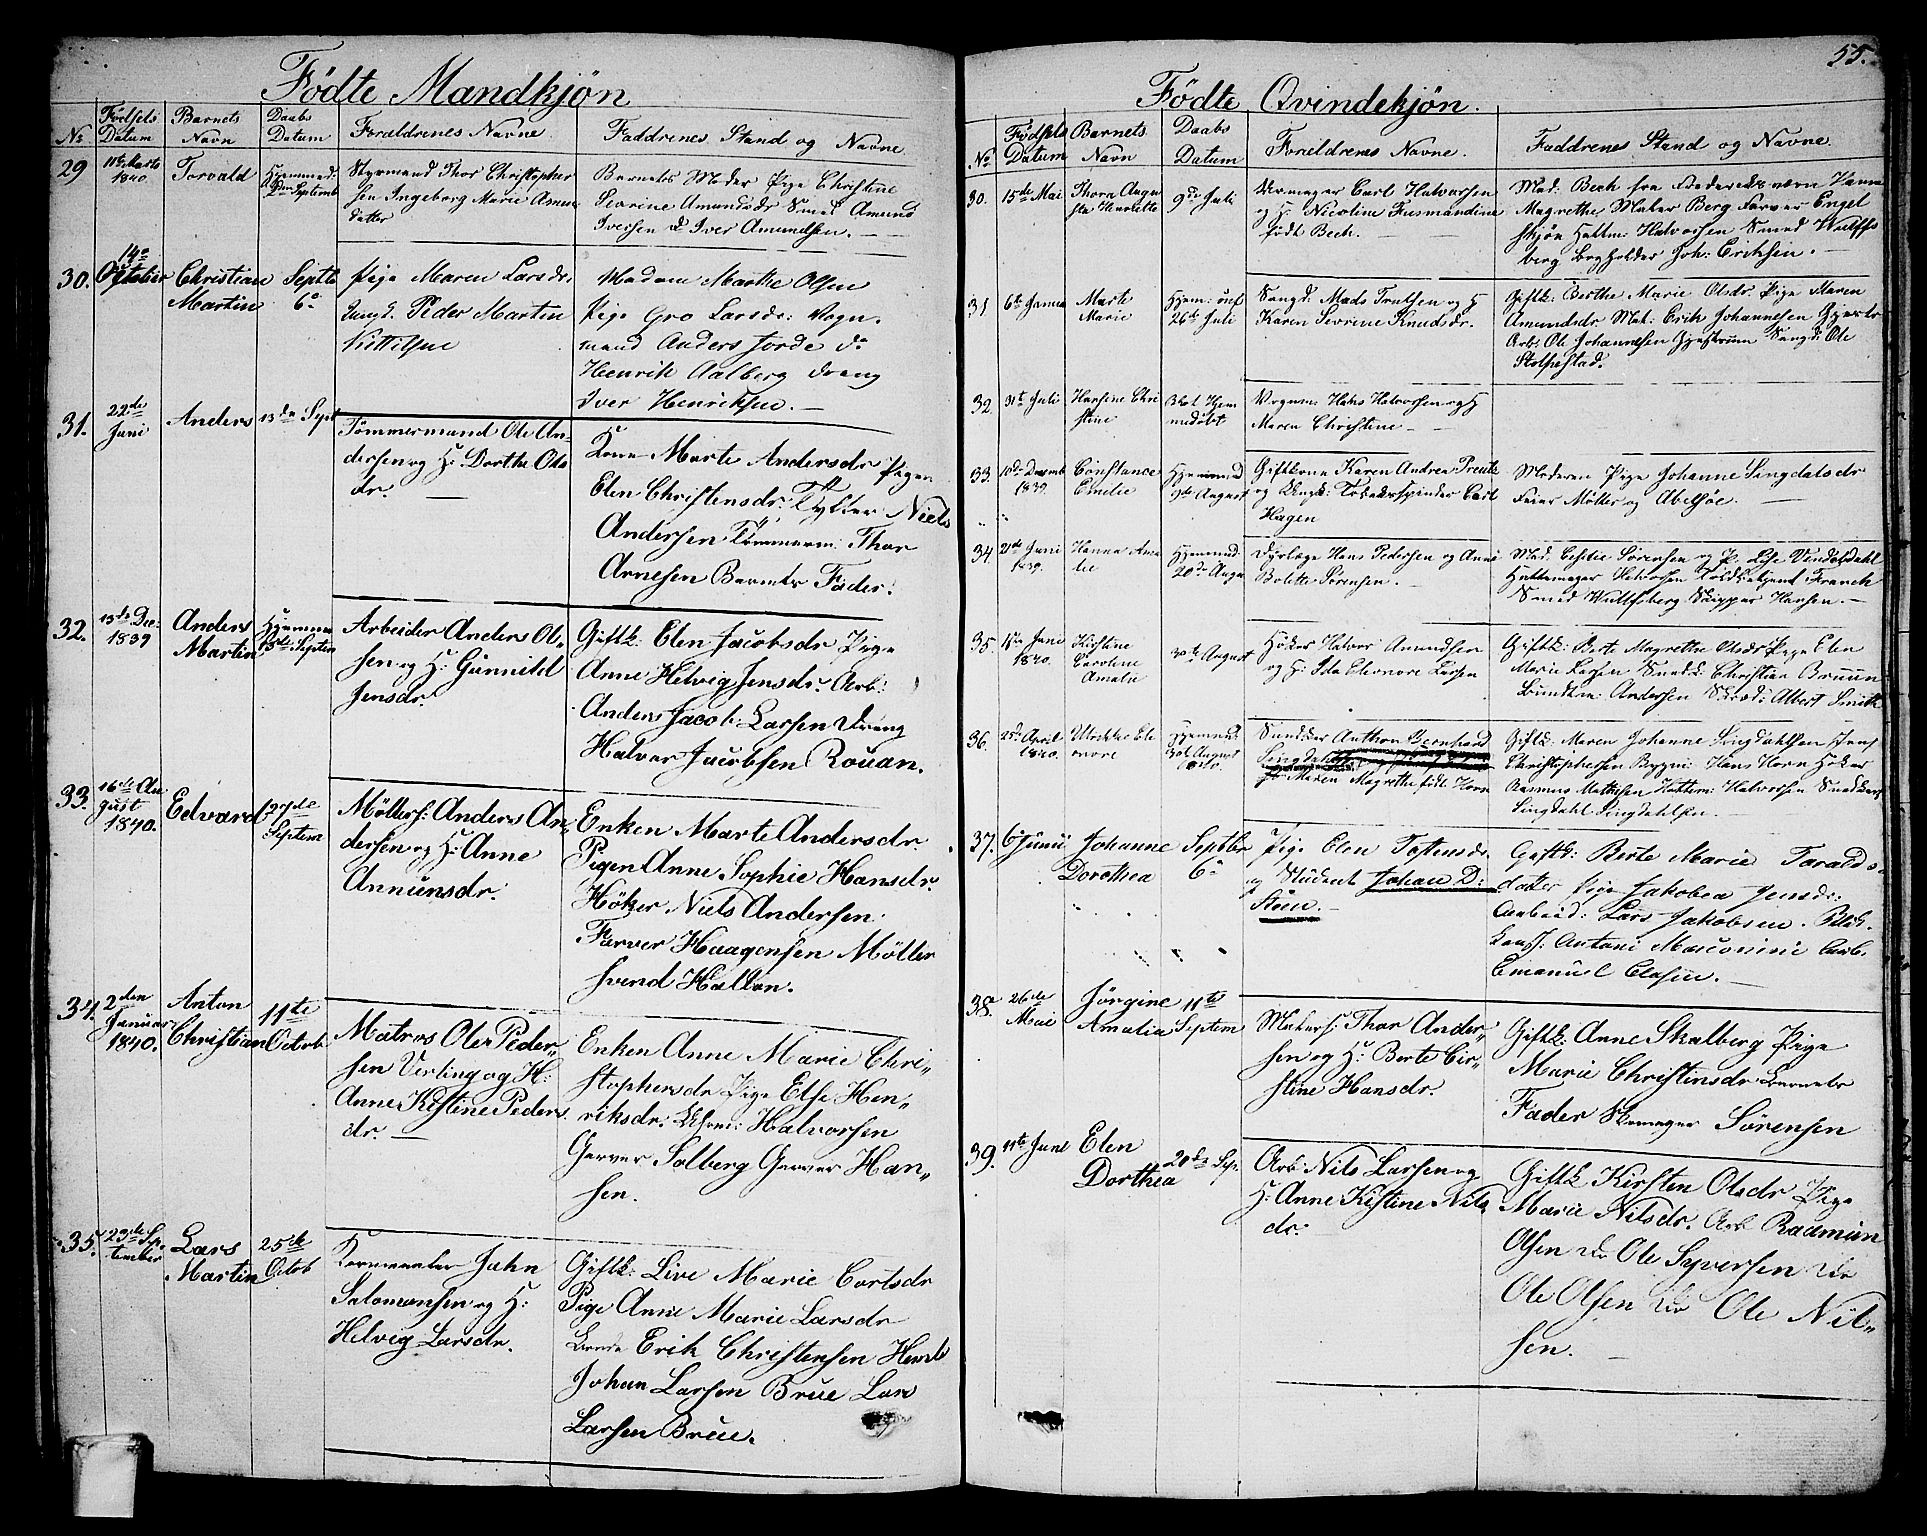 55.
Födte Mandkjön
No
Födsels Datum
Barnets Navn
Daabs Datum
Forældrenes Navne
Faddrenes Stand og Navne
29
11te Marts 1840.
Torvald
Hjemmed: Septemb
Styrmand Thor Christopher
sen Ingeborg Marie Amun
datter
Barnets Moder Pige Christine
Sevrine Amundsdr Smed Amund
Iversen & Iver Amundsen.
30.
14de October
Christian
Martin
Septb
6te
Pige Maren Larsdr.
Ungk. Peder Martin
Kittilsen
Madam Marthe Olsen
Pige Gro Larsdr: Vogn-
mand Anders Jorde do
Henrik Aalberg Dreng
Iver Henriksen.
31.
22de
Juni
Anders
13de Sept
Tömmermand Ole An-
dersen og H: Dorthe Ols
dr.
Kone Marte Andersdr Pigen
Elen Christensdr. Flytter Niels
Andersen Tömmerm: Thor
Arnesen Barnets Fader.
32.
13de Dec:
1839
Anders
Martin
Hjemme
13de Septem
Arbeider Anders Ol-
sen og H: Gunnild
Jensdr.
Giftk: Elen Jacobsdr Pige
Anne Helvig Jensdr. Arb:
Anders Jacob: Larsen Dreng
Halvor Jacobsen Rouan.
33.
16de Au
gust
1840.
Edvard
27de
Septem
Möllers: Anders An-
dersen og H: Anne
Annunsdr.
Enken Marte Andersdr.
Pigen Anne Sophie Hansdr.
Höker Niels Andersen
Farver Haagensen Möller
svend Hallan.
34.
2den
Januar
1840.
Anton
Christian
11te
Octob
Matros Ole Peder-
sen Verling og H:
Anne Kistine Peders
dr.
Enken Anne Marie Chri-
stophersdr Pige Else Hen-
riksdr. Halvorsen
Garver Solberg Garver Han-
sen.
35.
23de Sep-
tember
Lars
Martin
25de
Octob
Kornmaaler John
Salomonsen og H:
Helvig Larsdr.
Giftk: Live Marie Cortsdr
Pige Anne Marie Larsdr
Erik Christensen
Johan Larsen Brue Lars
Larsen Brue.
Födte Qvindekjön.
No
Födsels Datum
Barnets Navn
Daabs Datum
Forældrenes Navne.
Faddrenes Stand og Navne.
30.
15de Mai
Thora Augu
sta Henriette
9de Juli
Urmager Carl Halvorsen
og H: Nicoline Fusmandine
födt Bech.
Mad: Bech fra Frederiksværn Hanna
Magrethe Maler Berg Farver Engel
skjön Hattm: Halvorsen Smed Wulfs
berg Bogholder Joh: Eriksen.
31
6te Januar
Marte
Marie
Hjem:
26de Juli
Svend. Mads Trulsen og H
Karen Sevrine Knudsdr.
Giftk: Berthe Marie Olsdr. Pige Maren
Amundsdr Mat: Erik Johannesen Hjerto
Arb: Ole Johannesen Svend: Ole
Stolpestad.
32.
31te Juli
Hansine Chri
stine
Blot Hjem
medöbt
Vognm: Hans Halvorsen og H
Maren Christine
33.
10de Decemb
1839.
Constance
Emilie
Hjemmed
9de August
Giftkone Karen Andrea
og Ungk: Tobaksspinder Carl
Hagen
Moderen Pige Johanne Lingdalsdr
Feier Möller og Abelsöe.
34.
21de Juni
1839.
Hanna Ama
lie
Hjemmed:
20de Augu
Dyrlæge Hans Pedersen og Anne
Bolette Sörensen.
Mad. Cecilie Sörensen og P. Else Vindalsdahl
Hattemager Halvorsen Franck
Smed Wulfsberg Skipper Hansen.
35.
Juni
1840.
Kistine
Caroline
Amalie
August
Höker Halvor Amundsen
og H: Ida Eleonore Larsen
Giftk: Berte Magrethe Olsdr Pige Elen
Marie Larsen Snedk: Christian Bruun
Andersen Svend: Albert Smith
36.
25de April
1840.
Ulrikke Ele
nore
Hjemmed:
August
1840.
Snedker Anthon Bernhard
Lingdahl
H: Maren Magrethe född Horn
Giftk: Maren Johanne Lingdahlsen Jens
Christophersen Bygm: Hans Horn Höker
Rasmus Mathisen Hattem: Halvorsen Snedker
Lingdahl Lingdahlsen.
37.
6 Junii
Johanne
Dorothea
Septbr
6te
Pige Elen Tostensdr.
og Student Johan D:
Stöen.
Giftk: Berte Marie Tarald s-
datter Pige Jakobea Jensdr:
Arbeid: Lars Jakobsen.
Antoni Marconini Arb.
Emanuel Clasen.
38.
26de
Mai
Jörgine
Amalia
11te
Septem
Matros: Thor Ander-
sen og H: Berte Cir-
stine Hansdr.
Giftk: Anne Skalberg Pige
Marie Christensdr. Barnets
Fader Skomager Sörensen
39.
11te June
Elen
Dorthea
20de Sep.
Arb: Nils Larsen og
H: Anne Kistine Nils
dr:
Giftk Kirsten Olsdr Pige
Marie Nilsdr. Arb Raamun
Olsen Do Ole Syversen Do
Ole Olsen Do Ole Nil-
sen.